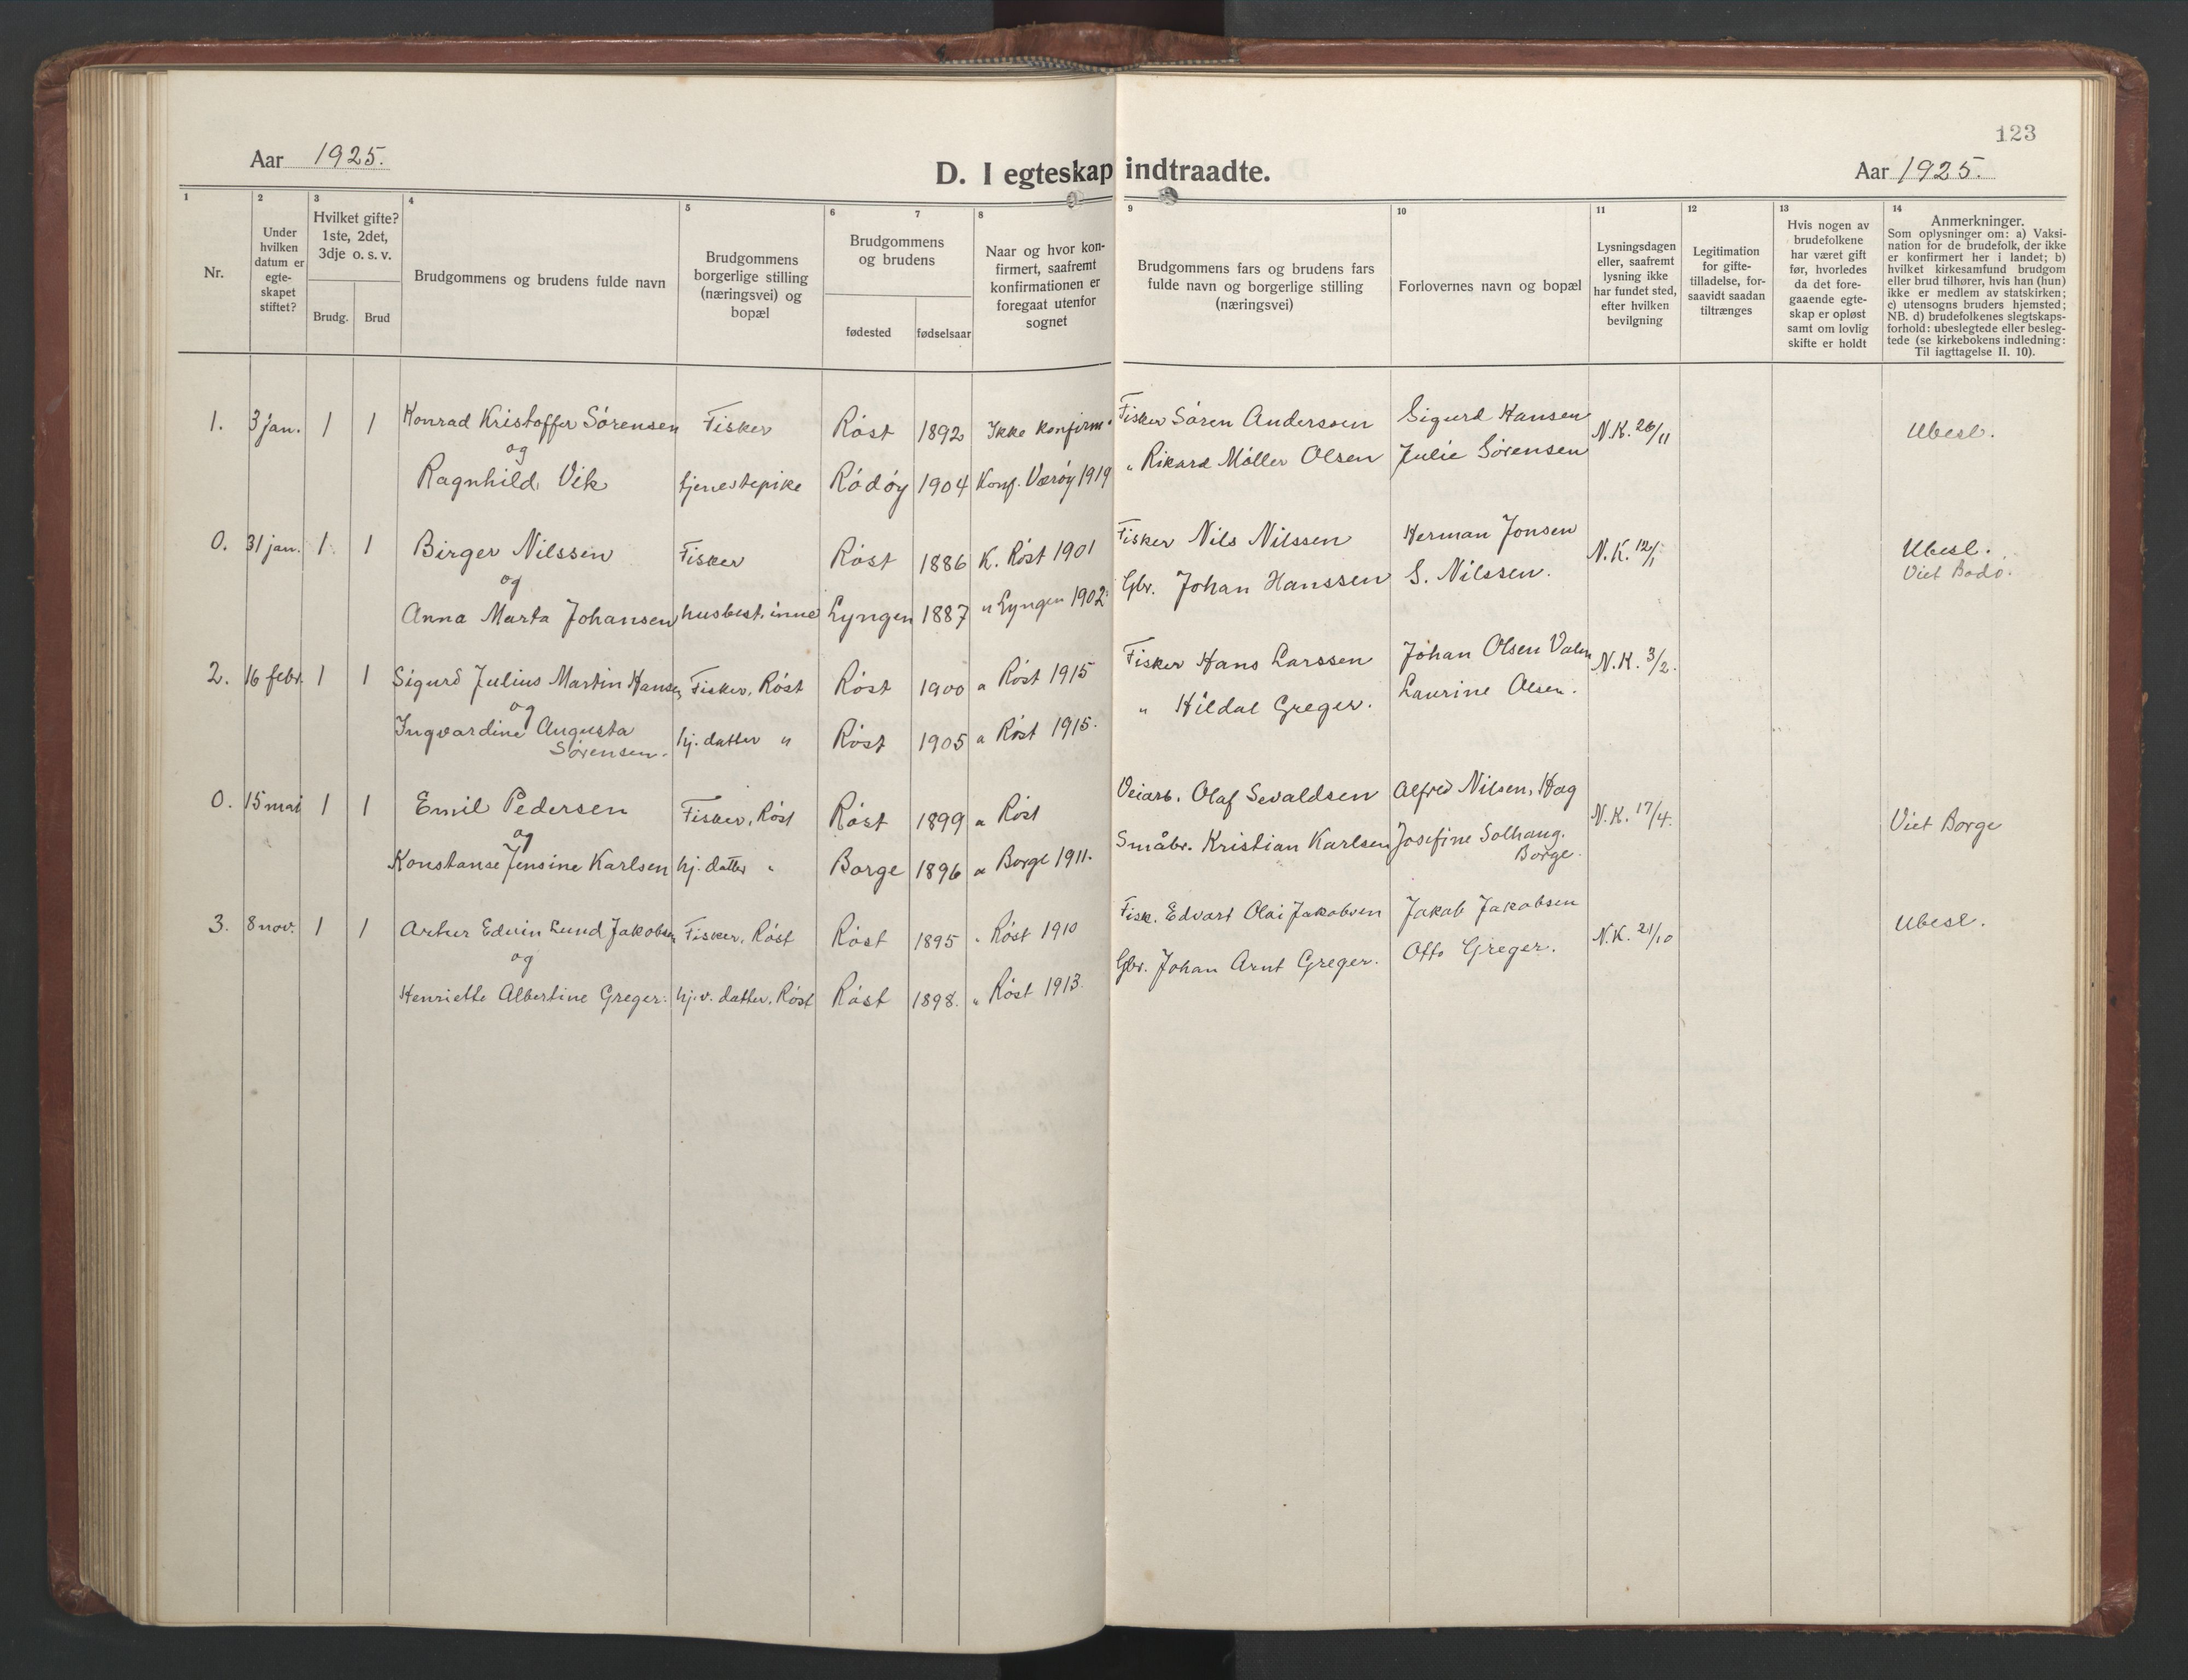 123
Aar 1925.
D. I egteskap indtraadte.
Aar 1925.
1
2
3
4
5
6
7
8
9
10
11
12
13
14
Nr.
Under
hvilken
datum er
egte-
skapet
stiftet?
Hvilket gifte?
1ste, 2det,
3dje o. s. v.
Brudg.
Brud
Brudgommens og brudens fulde navn
Brudgommens
borgerlige stilling
(næringsvei) og
bopæl
Brudgommens
og brudens
fødested
fødselsaar
Naar og hvor kon-
firmert, saafremt
konfirmationen er
foregaat utenfor
sognet
Brudgommens fars og brudens fars
fulde navn og borgerlige stilling
(næringsvei)
Forlovernes navn og bopæl
Lysningsdagen
eller, saafremt
lysning ikke
har fundet sted,
efter hvilken
bevilgning
Legitimation
for gifte-
tilladelse, for-
saavidt saadan
tiltrænges
Hvis nogen av
brudefolkene
har været gift
før, hvorledes
da det fore-
gaaende egte-
skap er opløst
samt om lovlig
skifte er holdt
Anmerkninger.
Som oplysninger om: a) Vaksi-
nation for de brudefolk, der ikke
er konfirmert her i landet; b)
hvilket kirkesamfund brudgom
eller brud tilhører, hvis han (hun)
ikke er medlem av statskirken;
c) utensogns bruders hjemsted;
NB. d) brudefolkenes slegtskaps-
forhold: ubeslegtede eller besleg-
tede (se kirkebokens indledning:
Til iagttagelse II. 10).
1. 3 jan. 1 1 Konrad Kristoffer Sörensen Fisker Röst 1892 Ikke konfirm. Fisker Sören Anderssen Sigurd Hansen N.K. 26/11 Ubesl.
og
Ragnhild Vik tjenestepike Rödöy 1904 Konf. Væröy 1919 " Rikard Möller Olsen Julie Sörensen
0. 31 jan. 1 1 Birger Nilssen Fisker Röst 1886 K. Röst 1901 Fisker Nils Nilssen Herman Jonsen N.K. 12/1 Ubesl.
og Viet Bodö.
Anna Marta Johansen husbest.inne Lyngen 1887 " Lyngen 1902 Gbr. Johan Hanssen S. Nilssen.
2. 16 febr. 1 1 Sigurd Julius Martin Hansen Fisker, Röst Röst 1900 " Röst 1915 Fisker Hans Larssen Johan Olsen Valen N.K. 3/2.
og
Ingvardine Augusta hj. datter " Röst 1905 " Röst 1915. " Hildal Greger. Laurine Olsen.
Sörensen.
0. 15 mai 1 1 Emil Pedersen Fisker, Röst Röst 1899 " Röst Veiarb. Olaf Sevaldsen Alfred Nilsen, Hag N.K. 17/4. Viet Borge
og
Konstanse Jensine Karlsen hj. datter " Borge 1896 " Borge 1911. Småbr. Kristian Karlsen Josefine Solhaug.
Borge.
3. 8 nov. 1 1 Artur Edvin Lund Jakobsen Fisker, Röst Röst 1895 " Röst 1910 Fisk. Edvart Olai Jakobsen Jakob Jakobsen N.K. 21/10 Ubesl.
og
Henriette Albertine Greger. hj.v. datter, Röst Röst 1898. " Röst 1913. Gbr. Johan Arnt Greger. Otto Greger.